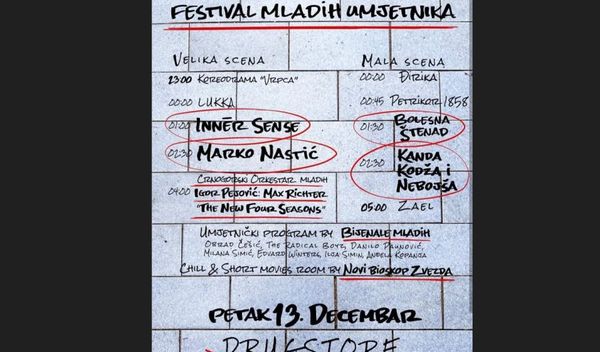 FESTIVAL MLADIH UMJETNIKA
VELIKA SCENA
23:00 KOREODRAMA "VRPCA"
00:00 LUKKA
01:00 INNĒR SENSE
02:30 MARKO NASTIĆ
CRNOGORSKI ORKESTAR MLADIH
04:00 IGOR PEJOVIĆ: MAX RICHTER
"THE NEW FOUR SEASONS"
MALA SCENA
00:00 ĐIRIKA
00:45 PETRIKOR 1858
01:30 BOLESNA
ŠTENAD
02:30 KANDA
KODŽA I
NEBOJŠA
05:00 ZAEL
UMJETNIČKI PROGRAM BY BIJENALE MLADIH
OBRAD ĆEŠIĆ, THE RADICAL BOYZ, DANILO PAUNOVIĆ,
MILANA SIMIĆ, EDVARD WINTERS, ILJA SIMIN, ANĐELA KOPANJA
CHILL & SHORT MOVIES ROOM BY NOVI BIOSKOP ZVEZDA
PETAK 13. DECEMBAR
DRUGSTORE